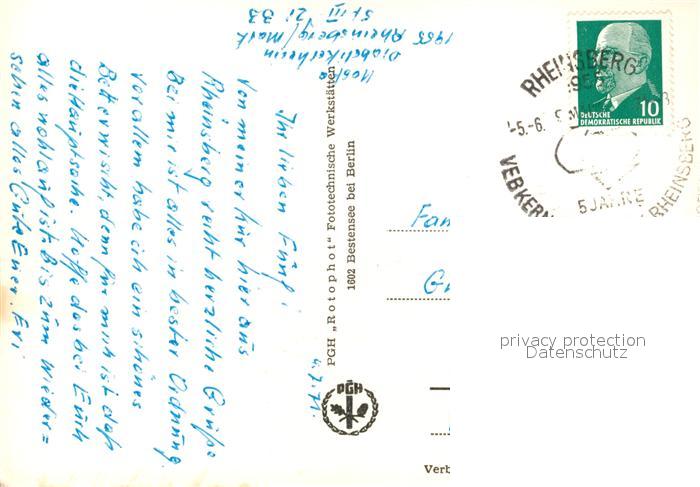 Diabetikerheim
1955 Rheinsberg/Mark
St. III Zi 33
4.7.71
Ihr lieben Fünf!
Von meiner Kur hier aus
Rheinsberg recht herzliche Grüße
Bei mir ist alles in bester Ordnung
vor allem habe ich ein schönes
Bett erwischt, denn für mich ist daß
die Hauptsache. Hoffe das bei Euch
alles wohlauf ist. bis zum Wieder=
sehn alles Gute Euer. Eri
PGH „Rotophot" Fototechnische Werkstätten
1602 Bestensee bei Berlin
PGH
Verb
Fam
RHEINSBERG
-5.-6.
5 JAHRE
VEB KERN
RHEINSBERG
10
DEUTSCHE
DEMOKRATISCHE REPUBLIK
privacy protection
Datenschutz